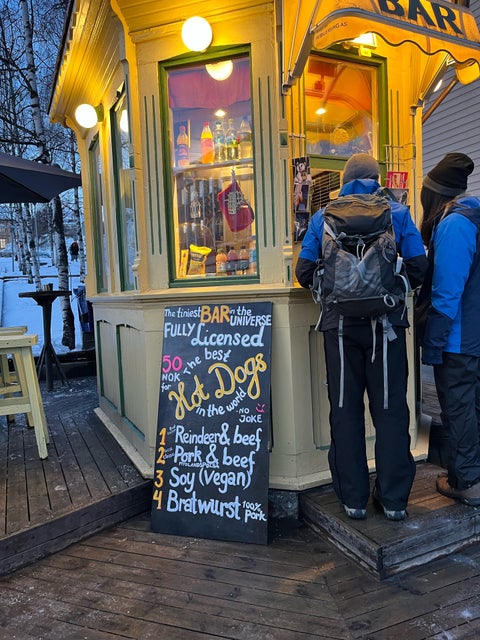 BAR
The tiniest BAR in the UNIVERSE
FULLY Licensed
50 NOK for
The best
Hot Dogs
in the world
NO JOKE
1 Reindeer & beef
2 Pork & beef
3 Soy (Vegan)
4 Bratwurst 100% Pork